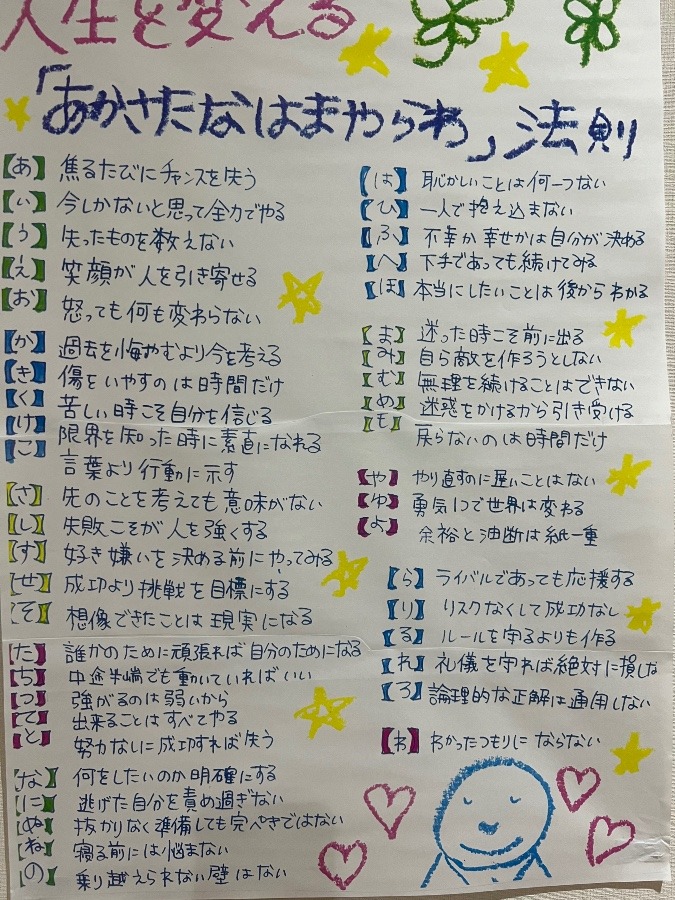 人生を変える
「あかさたなはまやらわ」法則
【あ】焦るたびにチャンスを失う
【い】今しかないと思って全力でやる
【う】失ったものを数えない
【え】笑顔が人を引き寄せる
【お】怒っても何も変わらない
【か】過去を悔やむより今を考える
【き】傷をいやすのは時間だけ
【く】苦しい時こそ自分を信じる
【け】限界を知った時に素直になれる
【こ】言葉より行動に示す
【さ】先のことを考えても意味がない
【し】失敗こそが人を強くする
【す】好き嫌いを決める前にやってみる
【せ】成功より挑戦を目標にする
【そ】想像できたことは現実になる
【た】誰かのために頑張れば自分のためになる
【ち】中途半端でも動いていればいい
【つ】強がるのは弱いから
【て】出来ることはすべてやる
【と】努力なしに成功すれば失う
【な】何をしたいのか明確にする
【に】逃げた自分を責め過ぎない
【ぬ】抜かりなく準備しても完ぺきではない
【ね】寝る前には悩まない
【の】乗り越えられない壁はない
【は】恥かしいことは何一つない
【ひ】一人で抱え込まない
【ふ】不幸か幸せかは自分が決める
【へ】下手であっても続けてみる
【ほ】本当にしたいことは後からわかる
【ま】迷った時こそ前に出る
【み】自ら敵を作ろうとしない
【む】無理を続けることはできない
【め】迷惑をかけるから引き受ける
【も】戻らないのは時間だけ
【や】やり直すのに遅いことはない
【ゆ】勇気1つで世界は変わる
【よ】余裕と油断は紙一重
【ら】ライバルであっても応援する
【り】リスクなくして成功なし
【る】ルールを守るよりも作る
【れ】礼儀を守れば絶対に損しな
【ろ】論理的な正解は通用しない
【わ】わかったつもりにならない